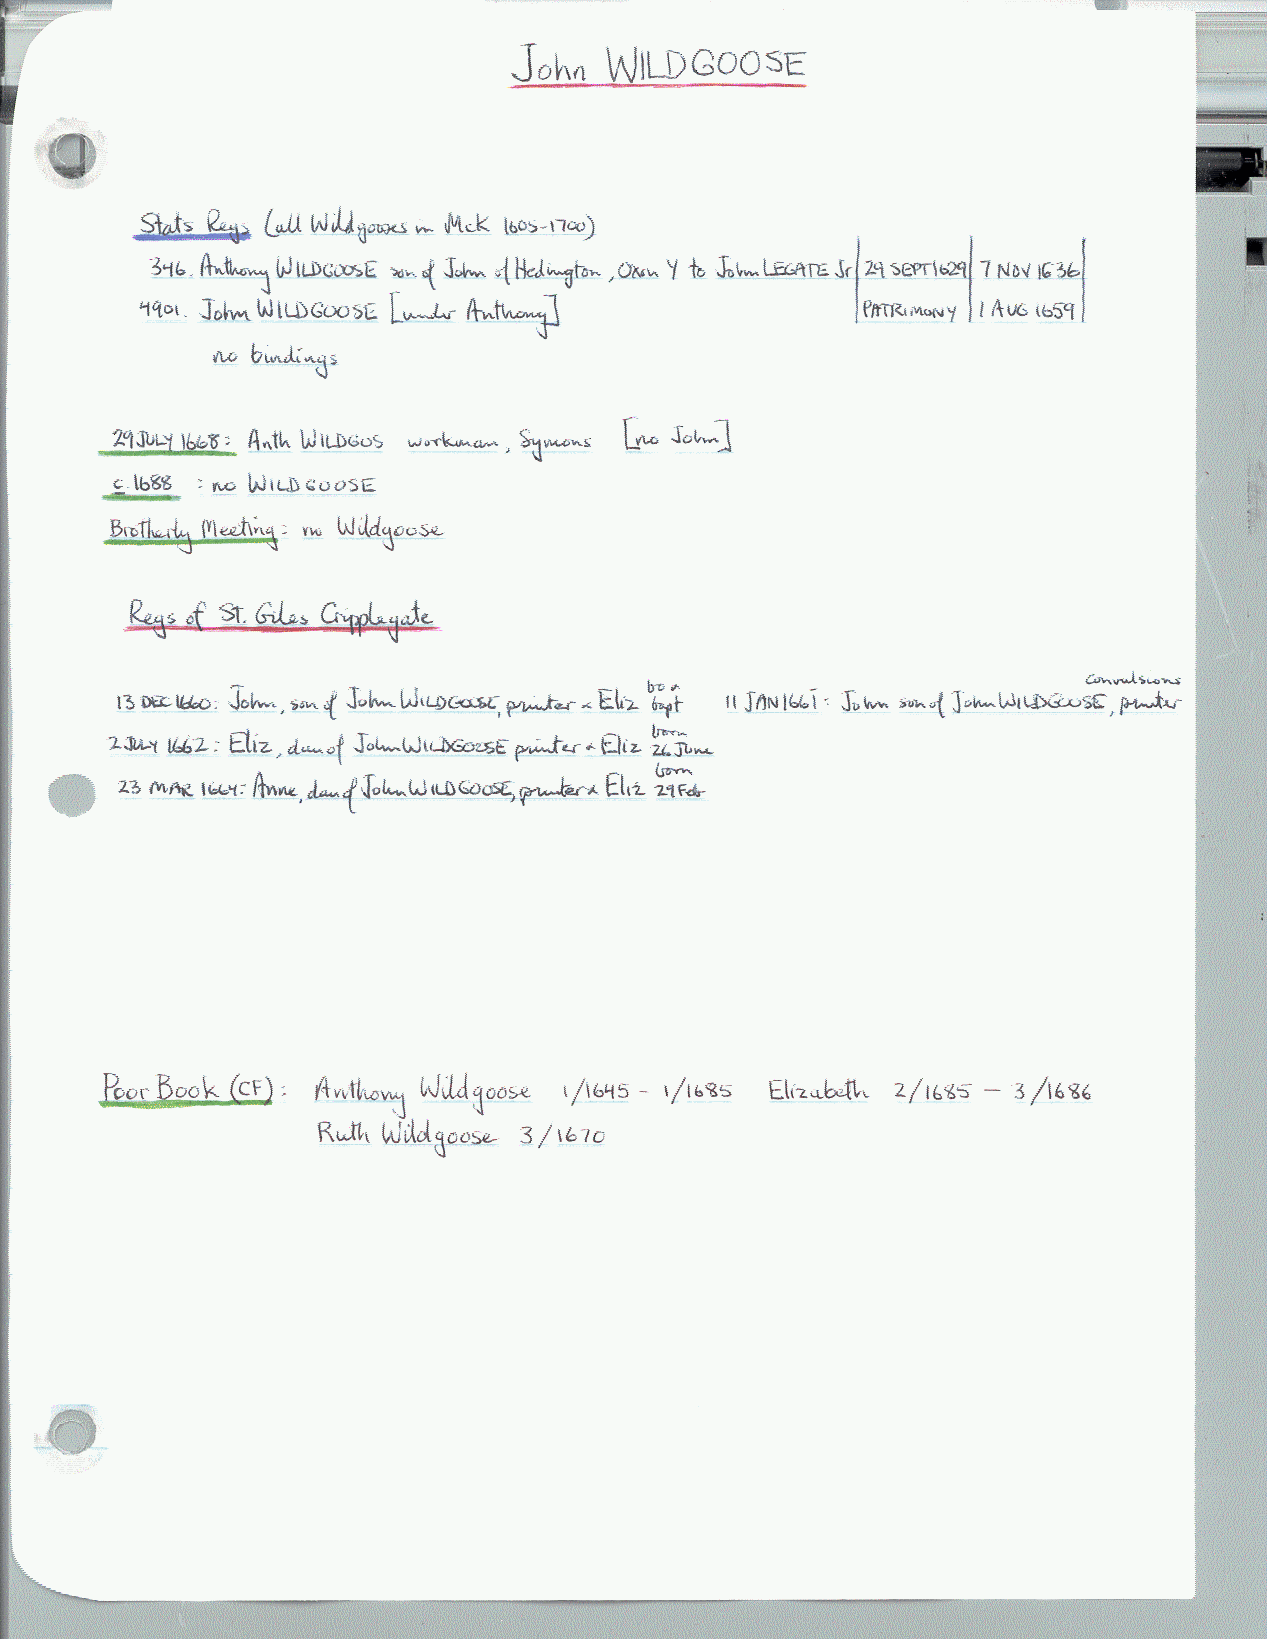 John WILDGOOSE
Stat's Regs (all Wildgooses in McK 1605-1700)
346. Anthony WILDGOOSE son of John of Hedington, Oxon Y to John LEGATE Jr 29 SEPT 1629 7 NOV 1636
4901. John WILDGOOSE [under Anthony] PATRIMONY 1 AUG 1659
no bindings
29 JULY 1668: Anth WILDGUS workman, Symons [no John]
c. 1688 : no WILDGOOSE
Brotherly Meeting: no Wildgoose
Regs of St. Giles Cripplegate
convulsions
13 DEC 1660: John, son of John WILDGOOSE, printer & Eliz bapt 11 JAN 1661: John son of John WILDGOOSE, printer
2 JULY 1662: Eliz, dau of John WILDGOOSE printer & Eliz born 26 June
23 MAR 1664: Anne, dau of John WILDGOOSE, printer & Eliz born 29 Feb
Poor Book (CF): Anthony Wildgoose 1/1645 - 1/1685 Elizabeth 2/1685 - 3/1686
Ruth Wildgoose 3/1670